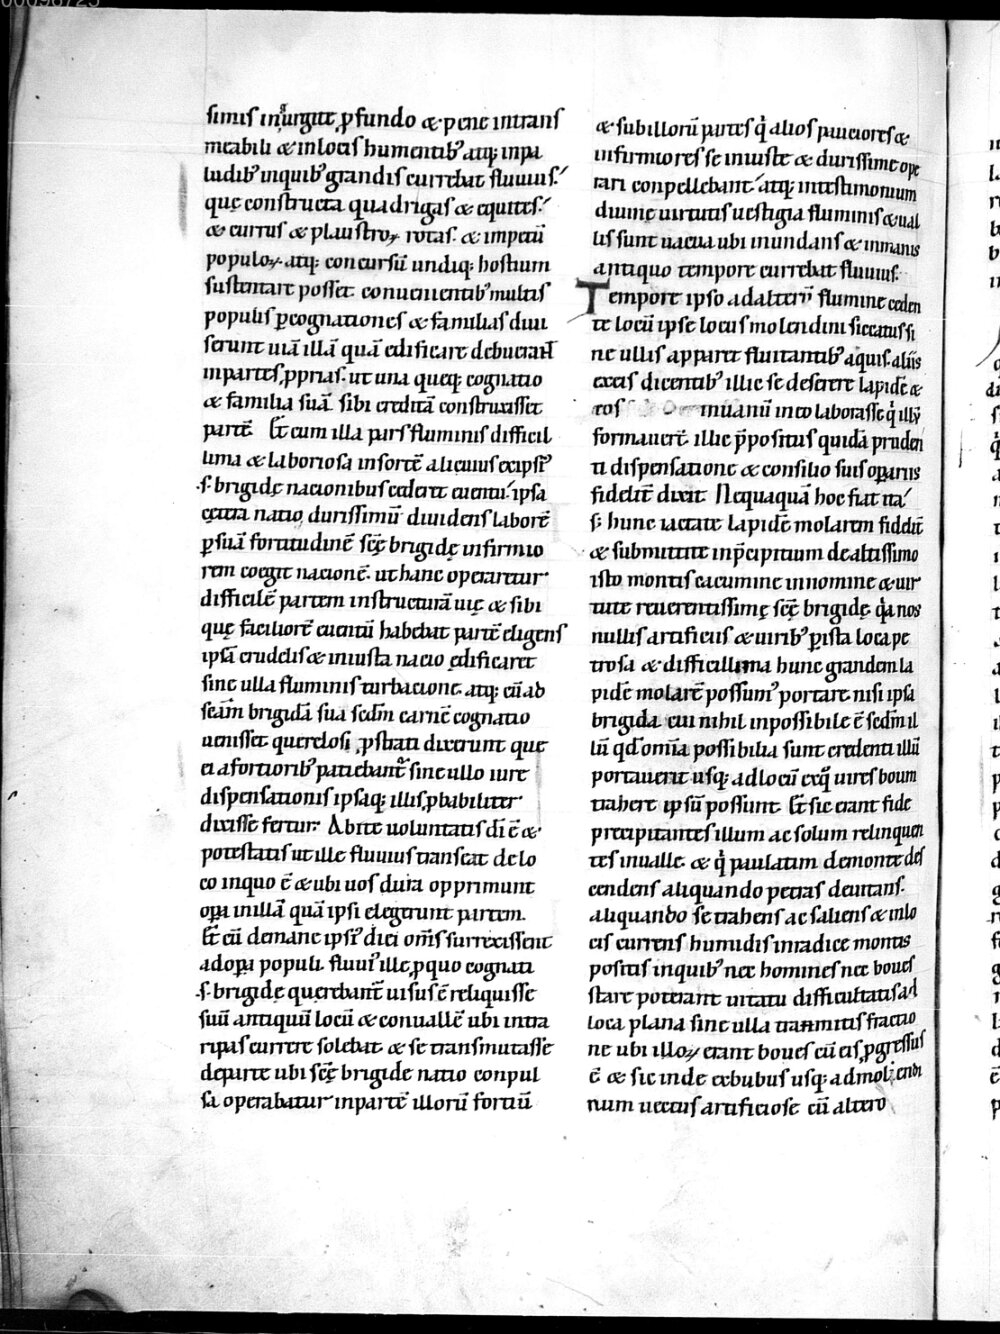 00098725
simis in gurgite ꝓfundo & pene intrans
meabili & in locis humentibꝰ atqꝫ in pa
ludibꝰ in quibꝰ grandis currebat fluuius.
que constructa quadrigas & equites.
& currus & plaustroꝝ rotas. & impetū
populoꝝ atqꝫ concursū undiqꝫ hostium
sustentare posset. conuenientibꝰ multis
populis ꝑ cognationes & familias diui
serunt uiā illā quā edificare debuerant
in partes ꝓprias. ut una queqꝫ cognatio
& familia suā sibi creditā construxisset
partē. Et cum illa pars fluminis difficil
lima & laboriosa in sortē alicuius ex ipsis
.s. brigidę nacionibus cederet euentu. ipsa
cetera natio durissimū diuidens laborē
ꝑ suā fortitudinē scę brigidę infirmio
rem coegit nacionē. ut hanc operaretur
difficilē partem in structurā uię & sibi
quę faciliorē euentū habebat partē eligens
ipsā crudelis & iniusta nacio edificaret
sine ulla fluminis turbacione. atqꝫ cū ad
scām brigidā sua scdm carnē cognatio
uenisset querelosi ꝓstrati dixerunt que
ei a fortioribꝰ patiebant sine ullo iure
dispensationis ipsaqꝫ illis ꝓbabiliter
dixisse fertur. Abite uoluntatis dī ē &
potestatis ut ille fluuius transeat de lo
co in quo ē & ubi uos dura opprimunt
opa in illā quā ipsi elegerunt partem.
Et cū de mane ipsiꝰ diei om̄s surrexissent
ad opa populi. fluuiꝰ ille ꝓ quo cognati
.s. brigidę querebant uisus ē reliquisse
suū antiquū locū & conuallē ubi intra
ripas currere solebat & se transmutasse
de parte ubi scę brigide natio conpul
sa operabatur in partē illorū fortiū
& sub illorū partes q̇ alios pauciores &
infirmiores se iniuste & durissime ope
rari conpellebant. atqꝫ in testimonium
diuinę uirtutis uestigia fluminis & ual
lis sunt uacua ubi inundans & inmanis
antiquo tempore currebat fluuius.
Tempore ipso ad alterū flumine ceden
te locū ipse locus molendini siccatus si
ne ullis apparet fluitantibꝰ aquis. aliis
dicentibꝰ illic se deserere lapidē &
eos in uanū in eo laborasse q̇ illū
formauerē. illic p̄positus quidā pruden
ti dispensatione & consilio suis oꝑariis
fidelit dixit. Nequaquā hoc fiat ita.
.s. hunc iactate lapidē molarem fidelit
& submittite in p̄cipitium de altissimo
isto montis cacumine in nomine & uir
tute reuerentissimę scę brigidę. q̇a nos
nullis artificiis & uiribꝰ ꝑ ista loca pe
trosa & difficillima hunc grandem la
pidē molarē possumꝰ portare nisi ipsa
brigida cui nihil inpossibile ē scdm il
lū qd om̄ia possibilia sunt credenti illū
portauerit usqꝫ ad locū ex q̇ uires boum
trahere ipsū possunt. Et sic erant fide
precipitantes illum ac solum relinquen
tes in ualle. & q̇ paulatim de monte des
cendens aliquando petras deuitans.
aliquando se trahens ac saliens & in lo
cis currens humidis in radice montis
positis in quibꝰ nec homines nec boues
stare poterant uitatu difficultatis ad
loca plana sine ulla fractio
ne ubi illoꝝ erant boues cū eis ꝓgressus
ē & sic inde ex bubus usqꝫ ad molendi
num uectus artificiose cū altero